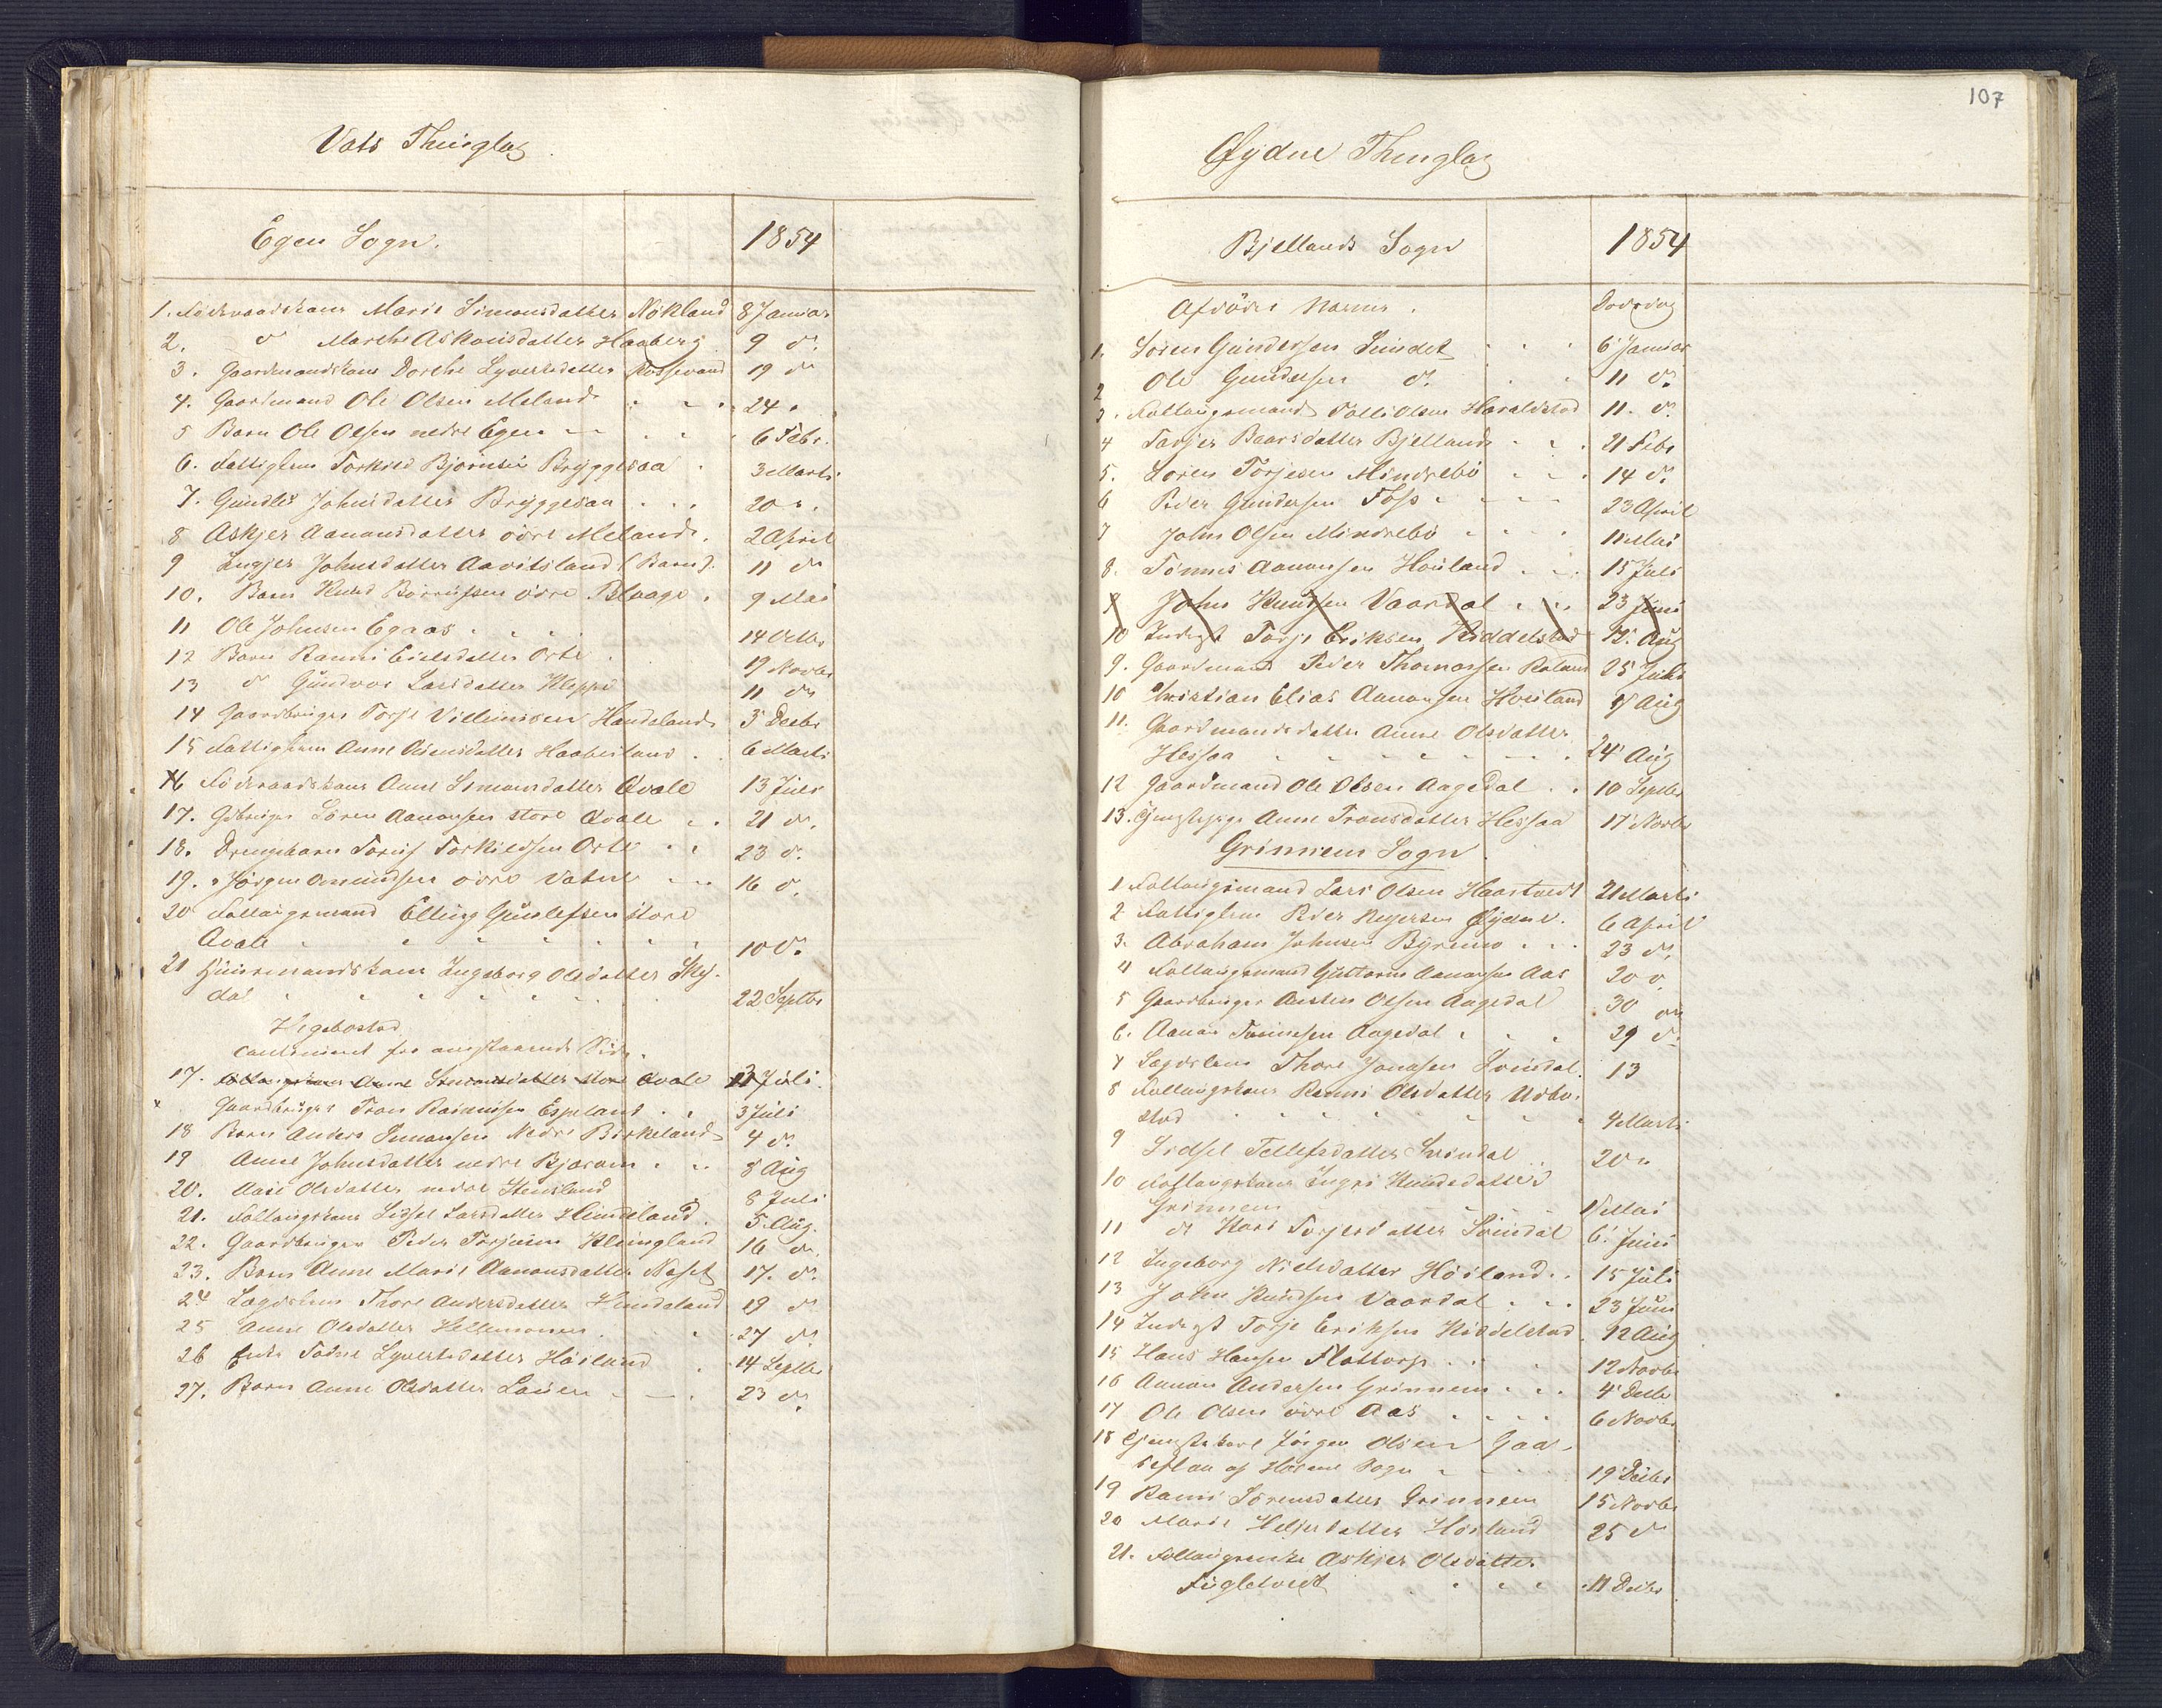 Vats Thinglag
Egen Sogn. 1854
1. Föderaadskone Marie Simonsdatter Nökland 8 Januar
2. do Marthe Askonisdatter Haaberg 9 do
3. Gaardmandskone Dorthe Syvertsdatter Rossevand 19 do
4. Gaardmand Ole Olsen Meland 24 "
5 Barn Ole Olsen nedre Egen 6 Febr.
6. Fattiglem Torkild Björnsen Bryggesaa 3 Marts
7. Gundle Johnsdatter Bryggesaa 20 "
8 Askjer Aanonsdatter övre Meland 2 April
9 Ingjer Johnsdatter Aavitsland (Barn). 11 do
10. Barn Knud Börrufsen övre Blaage 9 Mai
11 Ole Johnsen Egaas 14 Octbr
12 Barn Ranni Eielsdatter Orte 19 Novbr
13 do Gundvor Larsdatter Kleppe 11 do
14 Gaardbruger Torje Villumsen Handeland 3 Decbr
15 Fattiglem Anne Osensdatter Haabesland 6 Marts
16 Föderaadskone Anne Simonsdatter Qvale 13 Juli
17. Gdbruger Sören Aanonsen store Qvale 21 do.
18. Drengebarn Torius Torkildsen Orte 23 do.
19. " Jörgen Omundsen övre Vatne 16 do.
20 Follaugsmand Elling Gunlefsen store
Qvale 10 do.
21 Huusmandskone Ingeborg Olsdatter Skei-
dal 22 Septbr
Hegebostad
continueret fra anstaaende Side.
17. Follaugskone Anne Simonsdatter store Qvale 13 Juli.
Gaardbruger Tron Rasmusen Espeland 3 Juli
18 Barn Anders Simonsen Nedre Birkeland 4 do.
19 Anne Johnsdatter nedre Bjærum 8 Aug
20. Aase Olsdatter nedre Stensland 8 Juli
21. Follaugskone Sidsel Larsdatter Hundeland 5 Aug.
22. Gaardbruger Peder Torjusen Klungland 16 do.
23. Barn Anne Marie Aanonsdatter Naset 17. do.
24 Lægdslem Thore Andersdatter Hundeland 19 do
25 Anne Olsdatter Hellemoen 27 do.
26 Enke Todne Syvertsdatter Höiland 14 Septbr
27. Barn Anne Olsdatter Lauen 23 do.
107
Øydne Thinglag
Bjellands Sogn 1854
Afdödes Navne. Dödsdag
1. Sören Gundersen Sundet 6 Januar
2 Ole Gundersen do. 11 do.
3. Follaugsmand Salli Olsen Haraldstad 11. do.
4 Tarjer Baarsdatter Bjelland 21 Febr
5. Soren Torjesen Mindrebö 14 do.
6 Peder Gundersen Foss 23 April
7 John Olsen Mindrebö 11 Mai
8. Tönnes Aanonsen Houland 15 Juli
9 John Knudsen Vaardal 23 Juni
10 Inderst Torje Eriksen Kiddelstad 12. Aug
9. Gaardmand Peder Thomassen Roland 25 Juli
10 Christian Elias Aanonsen Houland 7 Aug
11. Gaardmandsdatter Anne Olsdatter
Hessaa 24 Aug
12 Gaardmand Ole Olsen Aagedal 10 Septbr
13. Tjenestepige Anne Tronsdatter Hessaa 17 Novbr
Grinnem Sogn
1 Follaugsmand Lars Olsen Haastvedt 21 Marts
2 Fattiglem Peder Reyersen Øydne. 6 April
3. Abraham Johnsen Byremo 23 do.
4 Follaugsmand Guttorm Aanonsen Aas 20 do.
5 Gaardbruger Austen Olsen Aagedal 30 do
6. Aanon Tarinesen Aagedal 29 do.
7 Lægdslem Thore Jonassen Sveindal. 13
8 Follaugskone Ranni Olsdatter Udbo-
stad 4 Marts
9 Sidsel Tellefsdatter Sveindal 20 "
10 Follaugskone Ingri Knudsdatter
Grinnem 1 Mai
11 do Kari Torjersdatter Sveindal 6. Juni
12 Ingeborg Nielsdatter Höiland. 15 Juli
13 John Knudsen Vaardal 23 Juni
14 Inderst Torje Eriksen Kiddelstad. 12 Aug
15 Hans Hansen Flottorp 12 Novbr
16 Aanon Andersen Grinnem 4 Decbr
17 Ole Olsen övre Aas 6 Novbr
18 Tjenestekarl Jörgen Olsen Gaa-
seflaa af Havene Sogn 19 Decbr
19 Ranni Sörensdatter Grinnem 15 Novbr
20 Marie Heljesdatter Höiland 25 do
21. Follaugsenke Askjer Olsdatter
Fugletvedt 11 Decbr